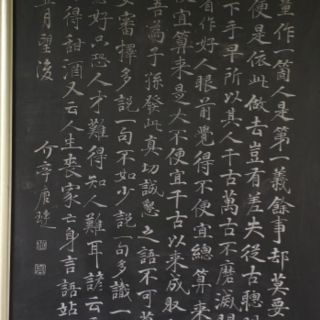 童作一箇人是第一義餘事却莫要
便是依此做去豈有差失從古聰
下手早所以其人千古萬古不磨滅
有作好人眼前覺得不便宜總算來
便宜算來是大不便宜千古以來成
吾為子孫發此真切誠懇之語不可
安審擇多說一句不如少說一句多識一
好只恐人才難得知人難耳諺云
得甜酒又云人生喪家亡身言語
月望後
介亭唐